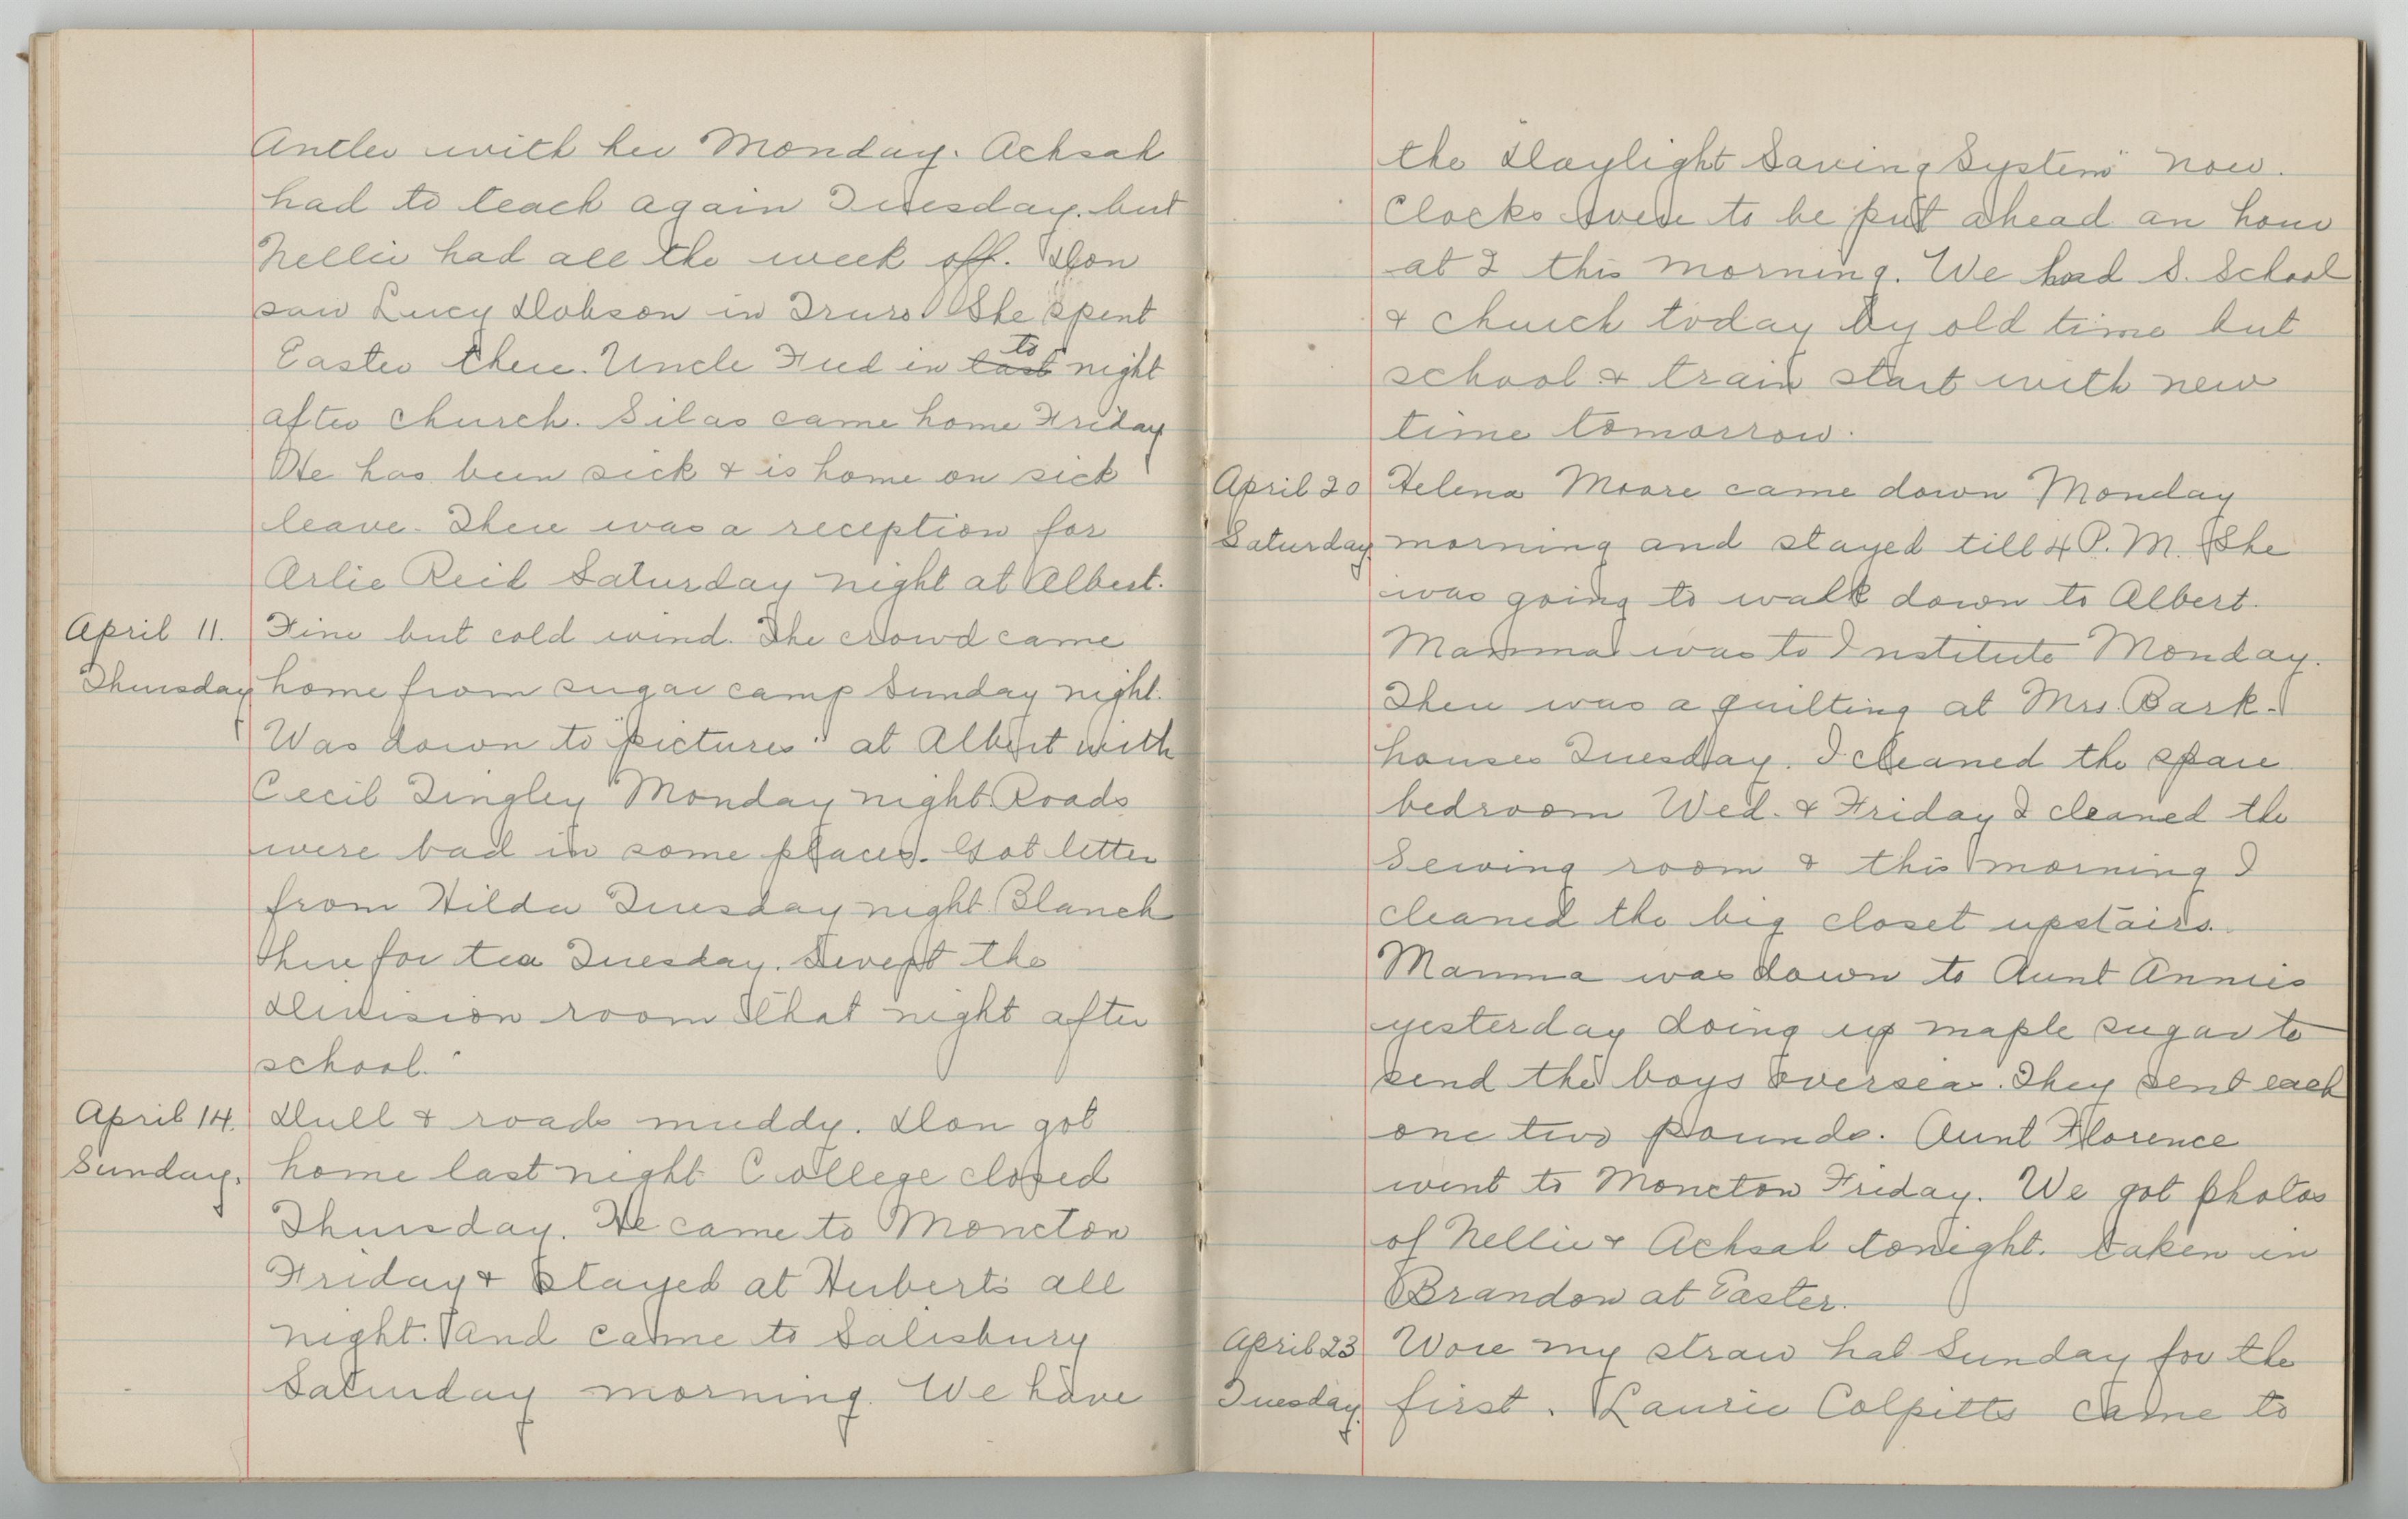 Antler with her Monday. Achsah
had to teach again Tuesday. but
Nellie had all the week off. Don
saw Lucy Dobson in Truro. She spent
Easter there. Uncle Fred in last to night
after church. Silas came home Friday
He has been sick & is home on sick
leave. There was a reception for
Arlie Reid Saturday night at Albert.
April 11. Fine but cold wind. The crowd came
Thursday home from sugar camp Sunday night.
Was down to "pictures" at Albert with
Cecil Tingley Monday night. Roads
were bad in some places. Got letter
from Hilda Tuesday night. Blanch
here for tea Tuesday. Swept the
Division room that night after
school.
April 14. Dull & roads muddy. Don got
Sunday. home last night College closed
Thursday. He came to Moncton
Friday & stayed at Huberts all
night. and came to Salisbury
Saturday morning. We have
the "Daylight Saving System" now.
Clocks were to be put ahead an hour
at 2 this morning. We had S. School
& church today by old time but
school & train start with new
time tomorrow.
April 20 Helena Moore came down Monday
Saturday morning and stayed till 4 P.M. She
was going to walk down to Albert.
Mamma was to Institute Monday.
There was a quilting at Mrs. Bark-
houses Tuesday. I cleaned the spare
bedroom Wed. & Friday I cleaned the
Sewing room & this morning I
cleaned the big closet upstairs.
Mamma was down to Aunt Annies
yesterday doing up maple sugar to
send the boys oversea. They sent each
one two pounds. Aunt Florence
went to Moncton Friday. We got photos
of Nellie & Achsah tonight. taken in
Brandon at Easter.
April 23 Wore my straw hat Sunday for the
Tuesday. first. Laurie Colpitts came to